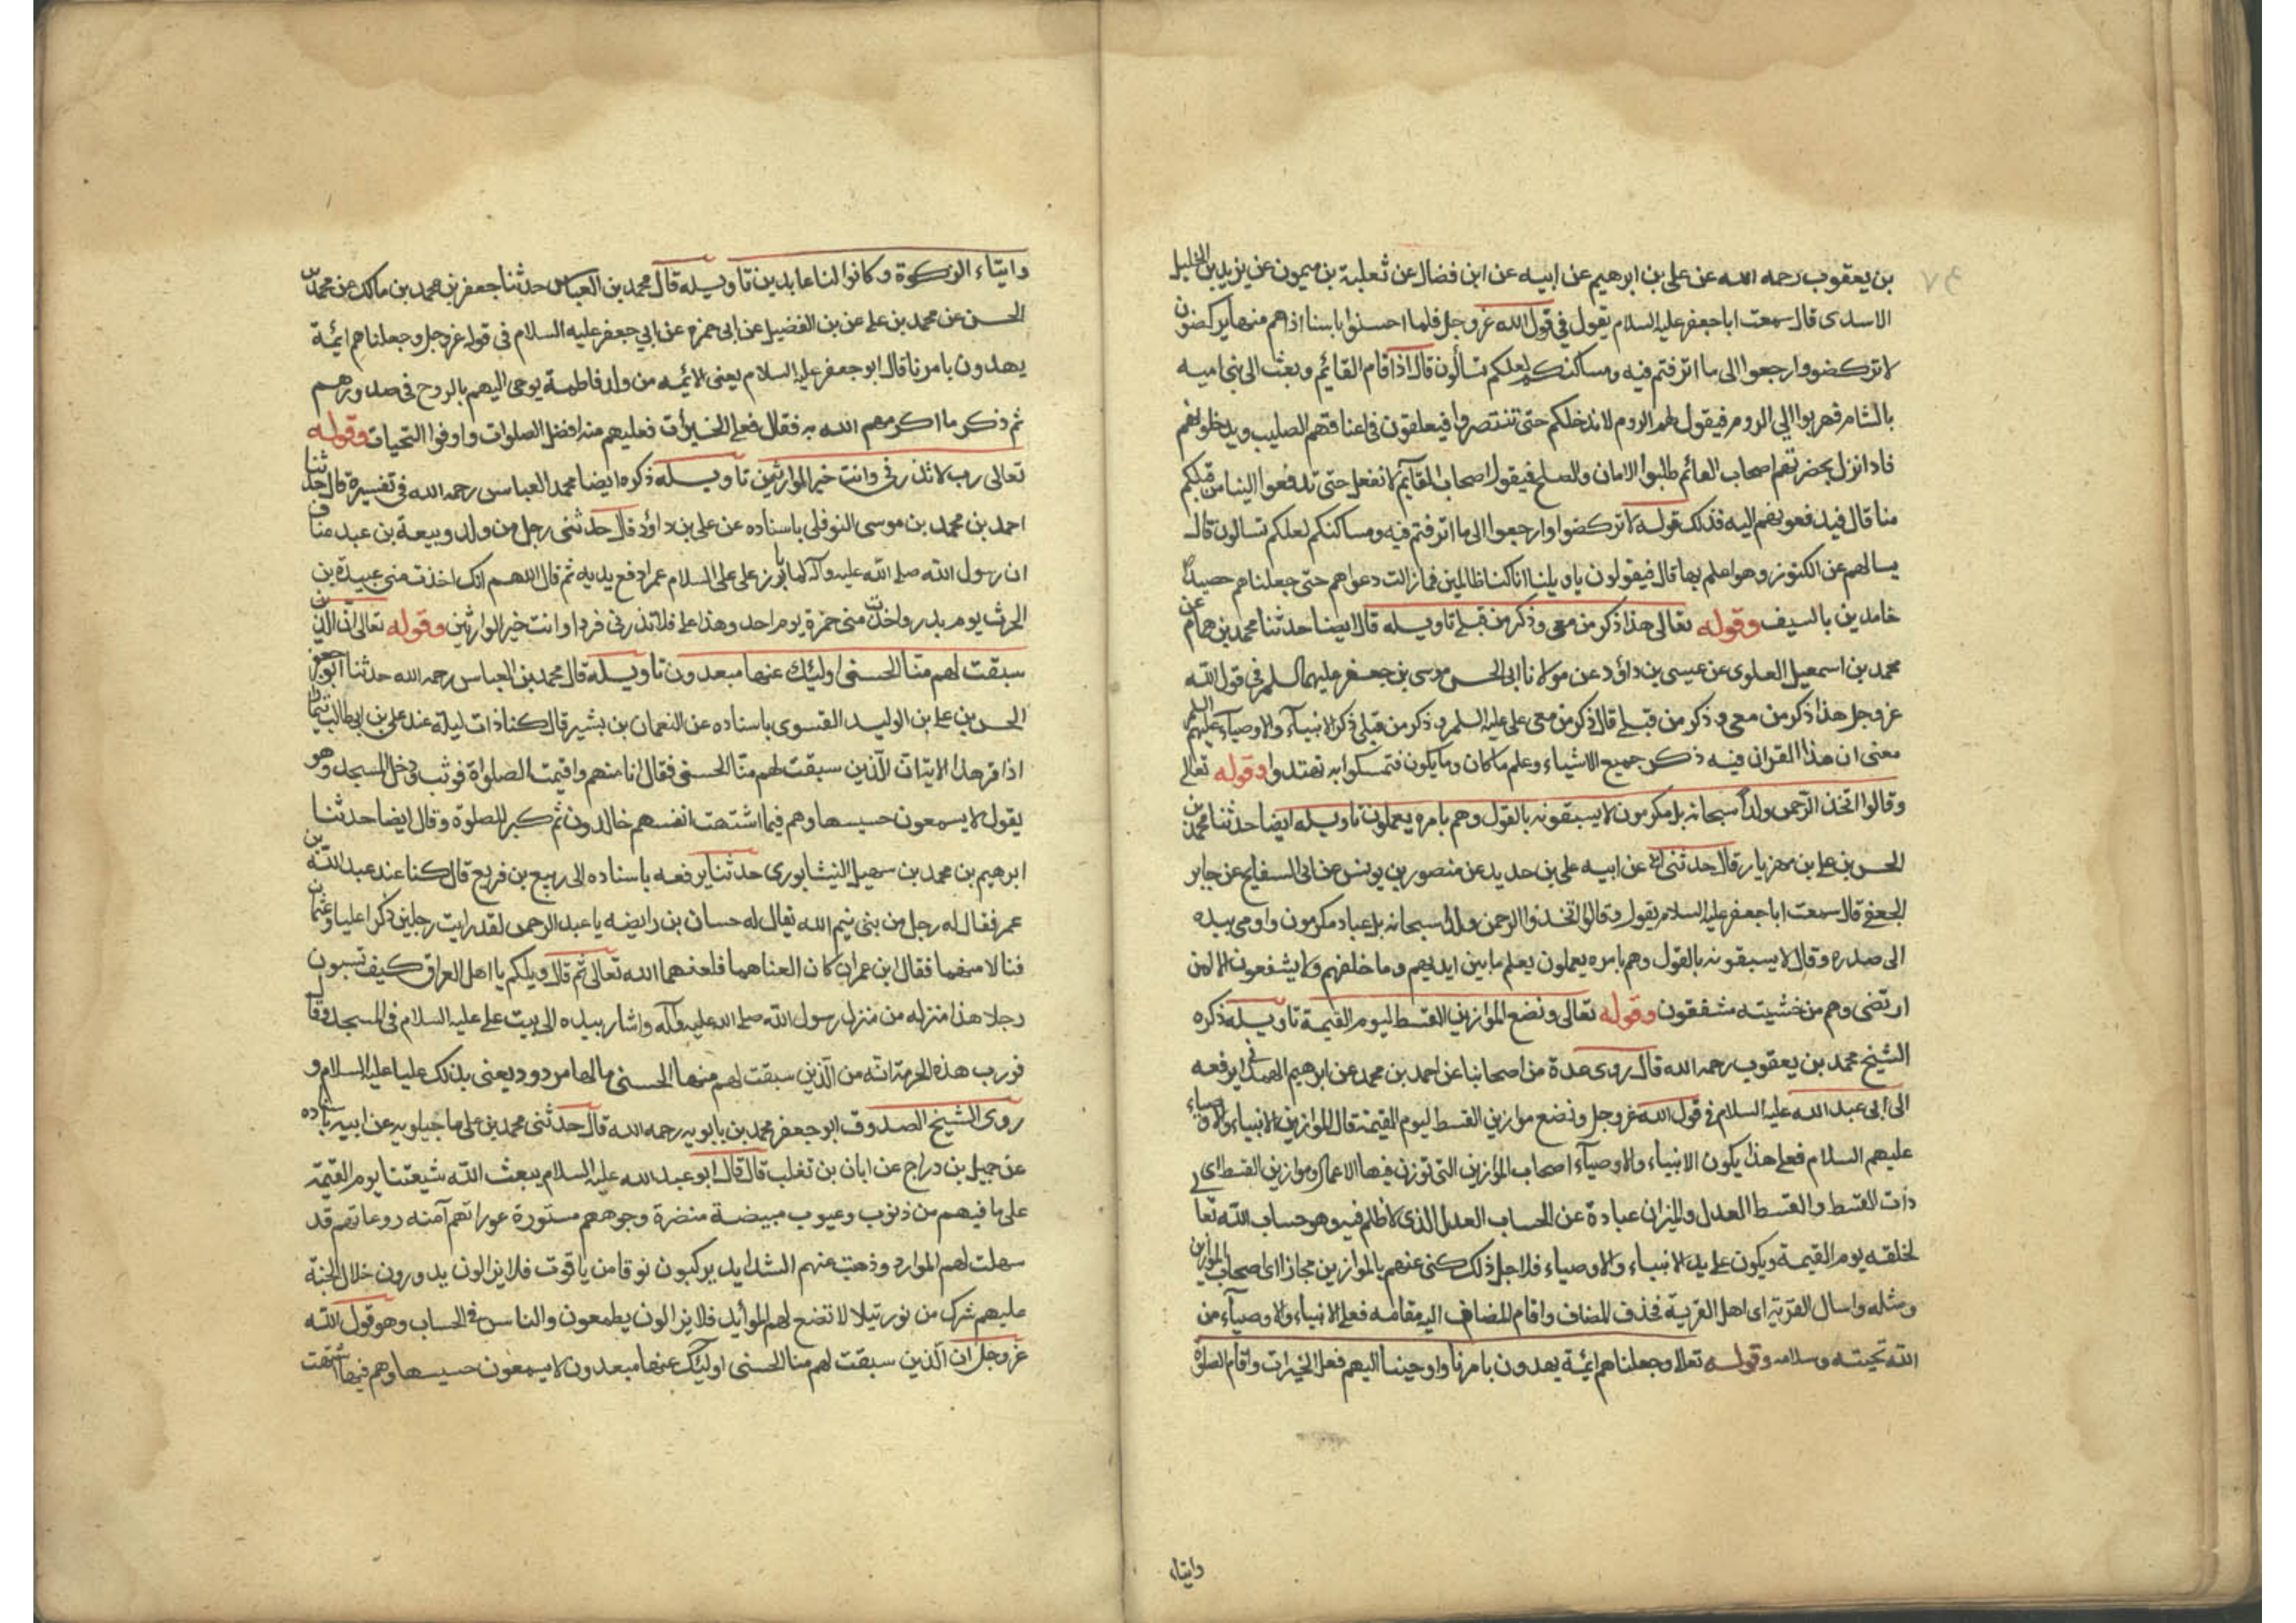 بن يعقوب رحمه الله عن علي بن ابرهيم عن ابيه عن ابن فضال عن ثعلبة بن ميمون عن يزيد بن الخليل
الاسدى قال سمعت اباجعفر عليه السلام يقول في قول الله عز وجل فلما احسنوا باسنا اذا هم منها يركضون
لا تركضو وارجعوا الى ما اترفتم فيه ومساكنكم لعلكم تسألون قال اذا قام القائم وبعث الى بني اميه
بالشام فهربوا الى الروم فيقول لهم الروم لا ندخلكم حتى تنتصروا فيعلقون في اعناقهم الصليب ويدخلونهم
فاذا نزل بحضرتهم اصحاب القائم طلبوا الامان والصلح فيقول اصحاب القائم لا نفعل حتى تدفعوا الينا من قبلكم
منا قال فيدفعونهم اليه فذلك قوله لا تركضوا وارجعوا الى ما اترفتم فيه ومساكنكم لعلكم تسالون قال
يسالهم عن الكنوز وهو اعلم بها قال فيقولون ياويلنا انا كنا ظالمين فما زالت دعواهم حتى جعلناهم حصيداً
خامدين بالسيف وقوله تعالى هذا ذكر من معي وذكر من قبلي تاويله قال ايضا حدثنا محمد بن همام عن
محمد بن اسمعيل العلوى عن عيسى بن داؤد عن مولانا ابى الحسن موسى بن جعفر عليهما السلم في قول الله
عز وجل هذا ذكر من معي وذكر من قبلي قال ذكر من معي علي عليه السلم وذكر من قبلي ذكر الانبياء والاوصياء عليهم السلم
معنى ان هذا القران فيه ذكر جميع الاشياء وعلم ما كان وما يكون فتمسكوا به تهتدوا وقوله تعالى
وقالوا اتخذ الرحمن ولداً سبحانه بل مكرمون لا يسبقونه بالقول وهم بامره يعملون تاويله ايضا حدثنا محمد بن
الحسن بن علي بن مهزيار قال حدثنى ابى عن ابيه علي بن حديد عن منصور بن يونس عن ابى السفايح عن جابر
الجعفي قال سمعت اباجعفر عليه السلام يقول وقالوا اتخذوا الرحمن ولدا سبحانه بل عباد مكرمون واومى بيده
الى صدره وقال لا يسبقونه بالقول وهم بامره يعملون يعلم ما بين ايديهم وما خلفهم ولا يشفعون الا لمن
ارتضى وهم من خشيته مشفقون وقوله تعالى ونضع الموازين القسط ليوم القيمة تاويله ذكره
الشيخ محمد بن يعقوب رحمه الله قال روى عدة من اصحابنا عن احمد بن محمد عن ابرهيم الهمدانى يرفعه
الى ابى عبد الله عليه السلام في قول الله عز وجل ونضع موازين القسط ليوم القيمة قال الموازين الانبياء والاوصياء
عليهم السلام فعلى هذا يكون الانبياء والاوصياء اصحاب الموازين التى توزن فيها الاعمال وموازين القسط اى
ذات القسط والقسط العدل والميزان عبادة عن الحساب العدل الذى لا ظلم فيه وهو حساب الله تعا
لخلقه يوم القيمة ويكون على يد الانبياء والاوصياء فلاجل ذلك كنى عنهم بالموازين مجازا اى اصحاب الموازين
ومثله واسال القرية اى اهل القرية فحذف المضاف واقام المضاف اليه مقامه فعلى الانبياء والاوصياء من
الله تحيته وسلامه وقوله تعالى وجعلناهم ائمة يهدون بامرنا واوحينا اليهم فعل الخيرات واقام الصلوٰة
وايتاء
وايتاء الزكوة وكانوا لنا عابدين تاويله قال محمد بن العباس حدثنا جعفر بن محمد بن مالك عن محمد بن
الحسن عن محمد بن علي عن بن الفضيل عن ابى حمزه عن ابي جعفر عليه السلام في قوله عز وجل وجعلناهم ائمة
يهدون بامرنا قال ابو جعفر عليه السلام يعنى الائمه من ولد فاطمة يوحى اليهم بالروح في صدورهم
ثم ذكر ما اكرمهم الله به فقال فعل الخيرات فعليهم منه افضل الصلوات واوفوا التحيات وقوله
تعالى رب لا تذرني وانت خير الوارثين تاويله ذكره ايضا محمد العباس رحمه الله في تفسيره قال حدثنا
احمد بن محمد بن موسى النوفلى باسناده عن علي بن داؤد قال حدثنى رجل من ولد وبيعة بن عبد مناف
ان رسول الله صلى الله عليه وآله لما بارز على عليه السلام عمرا دفع يديه ثم قال اللهم انك اخذت مني عبيدة بن
الحرث يوم بدر واخذت مني حمزة يوم احد وهذا علي فلا تذرني فردا وانت خير الوارثين وقوله تعالى ان الذين
سبقت لهم منا الحسنى اولئك عنها مبعدون تاويله قال محمد بن العباس رحمه الله حدثنا ابو جعفر
الحسن بن علي بن الوليد الفسوى باسناده عن النعمان بن بشير قال كنا ذات ليلة عند علي بن ابى طالب
اذا قر هذا الايات الذين سبقت لهم منا الحسنى فقال انا منهم واقيمت الصلواة فوثب ودخل المسجد وهو
يقول لا يسمعون حسيسها وهم فيما اشتهت انفسهم خالدون ثم كبر للصلوة وقال ايضا حدثنا
ابرهيم بن محمد بن سهيل النيشابورى حدثنا يرفعه باسناده الى ربيع بن فريع قال كنا عند عبد الله بن
عمر فقال له رجل من بنى تيم الله تعالى له حسان بن رابضه يا عبد الرحمن لقد رايت رجلين ذكرا عليا وعثمان
فنالا منهما فقال ابن عمر ان كان العناهما فلعنهما الله تعالى ثم قال ويلكم يا اهل العراق كيف تسبون
رجلا هذا منزله من منزل رسول الله صلى الله عليه وآله واشار بيده الى بيت علي عليه السلام في المسجد وقا
فورب هذه الحرمة انه من الذين سبقت لهم منها الحسنى مالها مردود يعنى بذلك عليا عليه السلام و
روى الشيخ الصدوق ابو جعفر محمد بن بابويه رحمه الله قال حدثنى محمد بن علي ماجيلويه عن ابيه باسناده
عن جميل بن دراج عن ابان بن تغلب قال قال ابو عبد الله عليه السلام يبعث الله شيعتنا يوم القيمة
على ما فيهم من ذنوب وعيوب مبيضة منضرة وجوههم مستورة عوراتهم آمنه روعاتهم قد
سهلت لهم الموارد وذهبت عنهم الشدايد يركبون نوقا من ياقوت فلا يزالون يدورون خلال الجنة
عليهم شرك من نور تيلالا تضع لهم الموأيد فلا يزالون يطمعون والناس في الحساب وهو قول الله
عز وجل ان الذين سبقت لهم منا الحسنى اولئك عنها مبعدون لا يسمعون حسيسها وهم فيما اشتهت